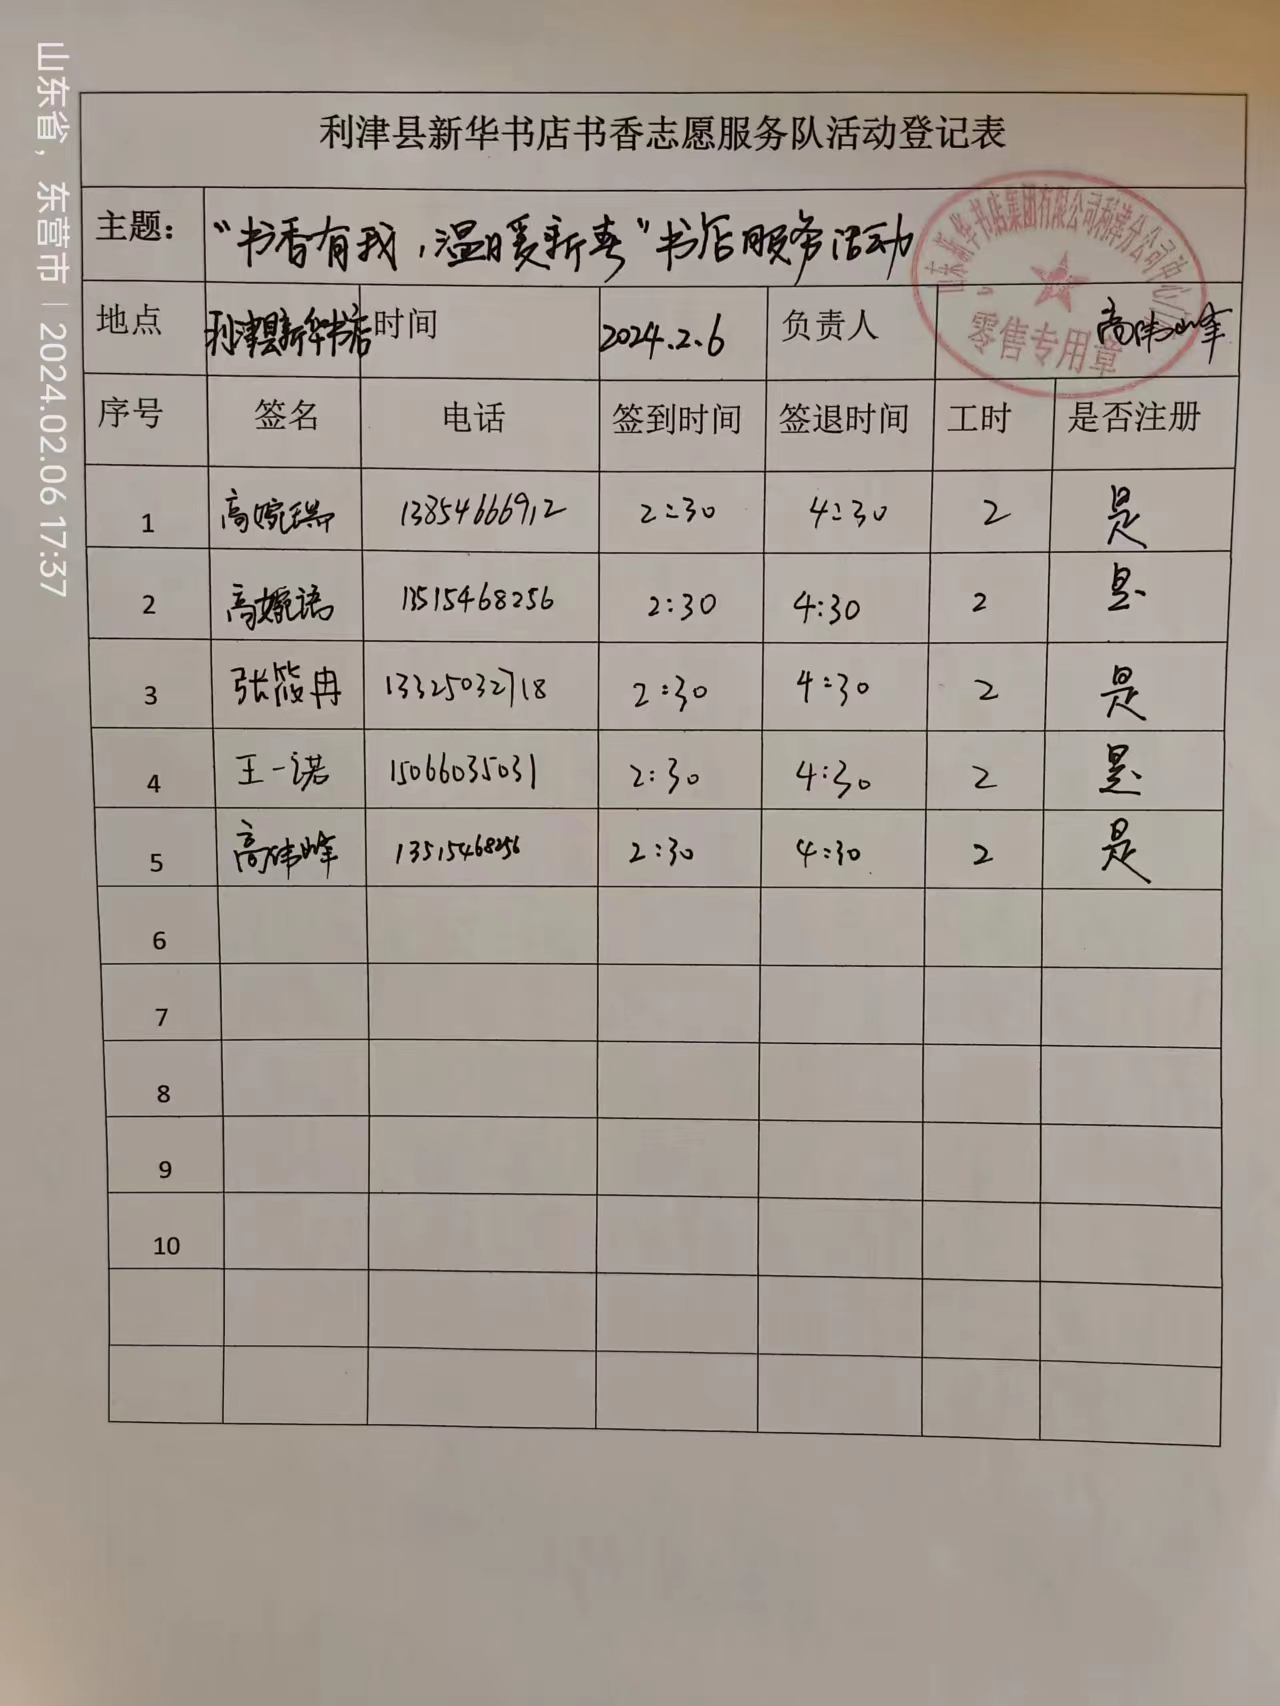 山东省，东营市 | 2024.02.06 17:37
利津县新华书店书香志愿服务队活动登记表
主题： “书香有我，温暖新春”书店服务活动
地点 利津县新华书店 时间 2024.2.6 负责人 高伟峰
山东新华书店集团有限公司利津分公司中心门
零售专用章
序号 签名 电话 签到时间 签退时间 工时 是否注册
1 高婉瑞 13854666912 2:30 4:30 2 是
2 高婉语 13515468256 2:30 4:30 2 是
3 张筱冉 13325032718 2:30 4:30 2 是
4 王一诺 15066035031 2:30 4:30 2 是
5 高伟峰 13515468256 2:30 4:30 2 是
6
7
8
9
10